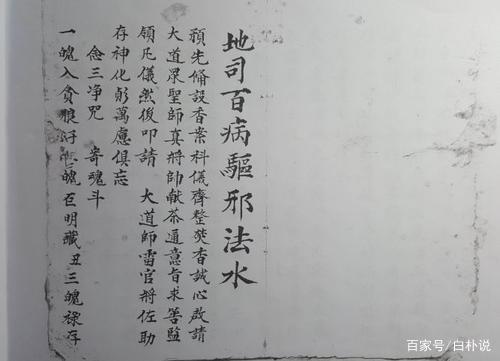 地司百病驅邪法水
預先備設香案科儀齊整焚香誠心啟請
大道眾聖師真將帥獻茶通意旨求善監
領凡儀然後叩請 大道師雷官將佐助
存神化形萬慮俱忘
念三净咒 寄魂斗
一魄入貪狼 魄巨明藏丑三魄祿存
百家号/白朴说